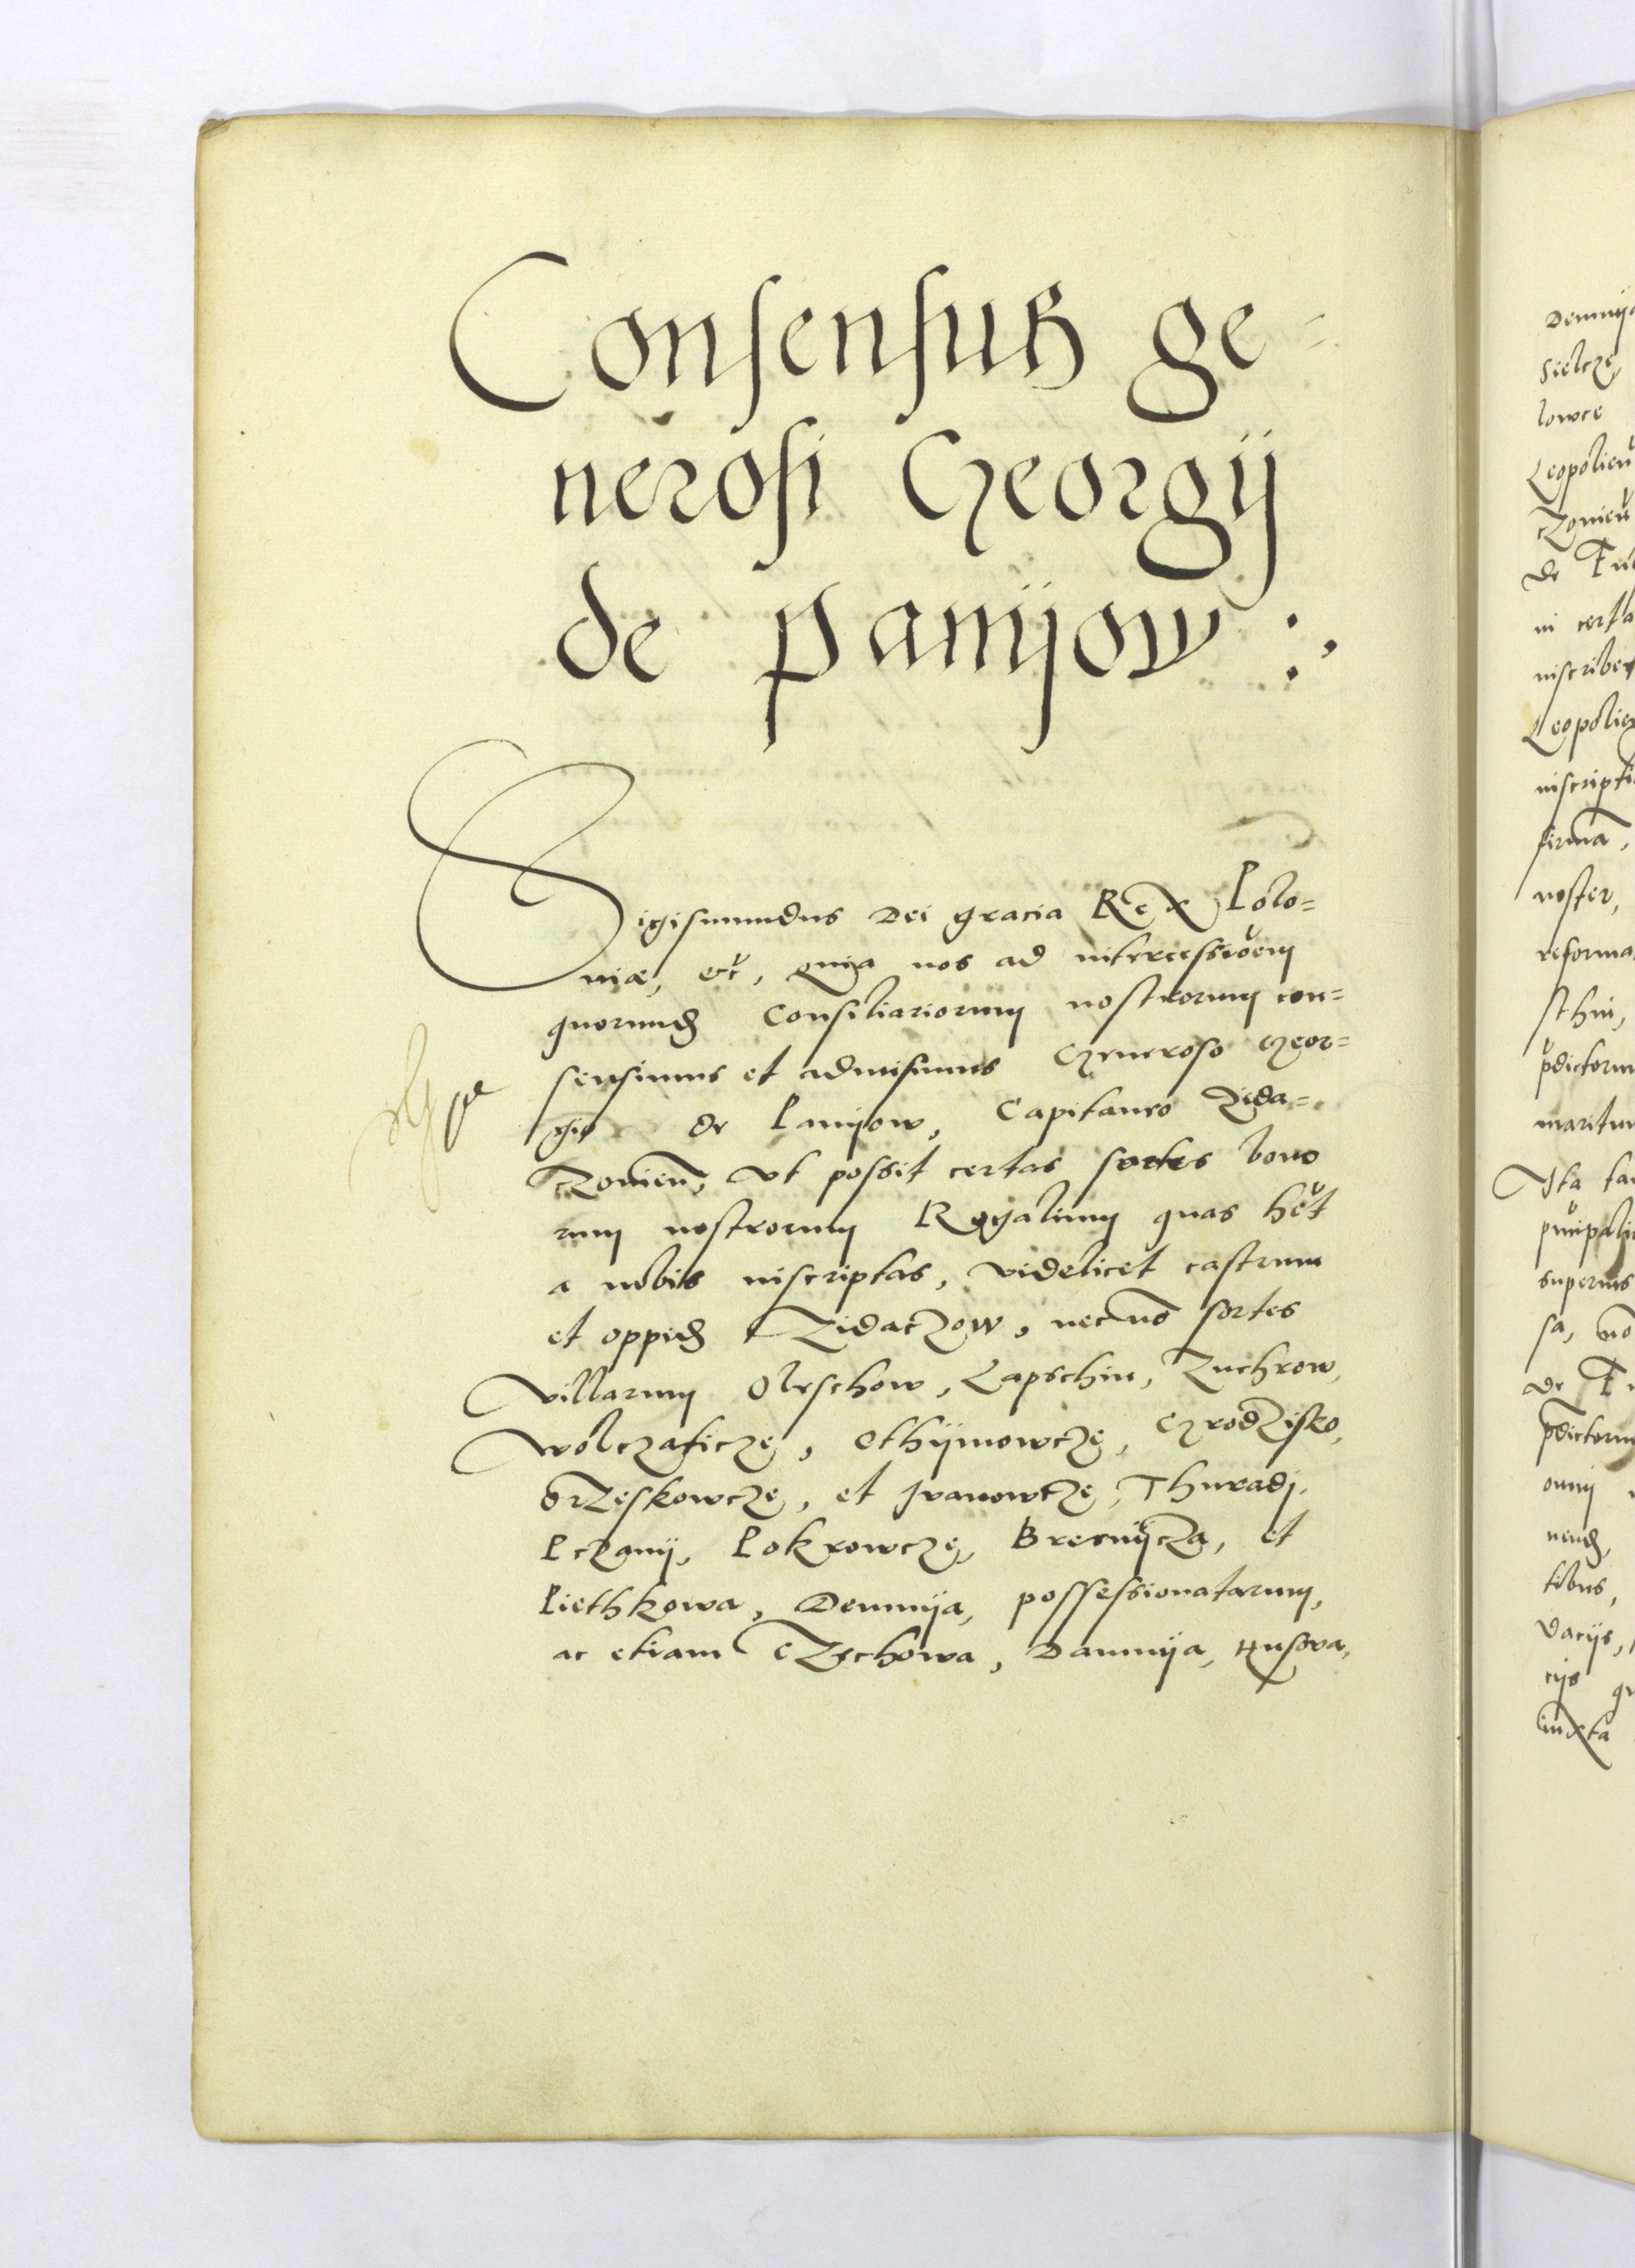 Consensus ge=
nerosi Georgij
de Panijow :,
Sigismundus Dei gracia Rex Polo=
niæ, etc̃, quia nos ad intercessioẽm
quorund̃ Consiliariorum nostrorum con=
sensimus et admisimus Generoso Geor=
gio de Panijow, Capitaneo Zida=
czowieñ, vt possit certas sortes bono
rum nostrorum Regalium quas hẽt
a nobis inscriptas, videlicet castrum
et oppid̃ Zidaczow, necnõ sortes
villarum Oleschow, Lapschin, Zuchrow,
Wolczaticze, Othijmowcze, Grodzisko,
Brzeskowcze, et Jvanowcze, Thuradj,
Pczanij, Pokrowcze, Bresnijcza, et
Piethkowa, Demnija, possessionatarum,
ac etiam Czschowa, Damnija,
Demnija
Sielcze
lowce
Leopolieñ
czowieñ
de
in certa
inscriber
Leopolieñ
inscripti
firma,
noster,
reforma
schin,
p̃dictorum
maritum
Ita ta
superius
sa, nõ
de
p̃dictorum
omni
nend̃,
tibus,
dacijs,
cijs
iuxta